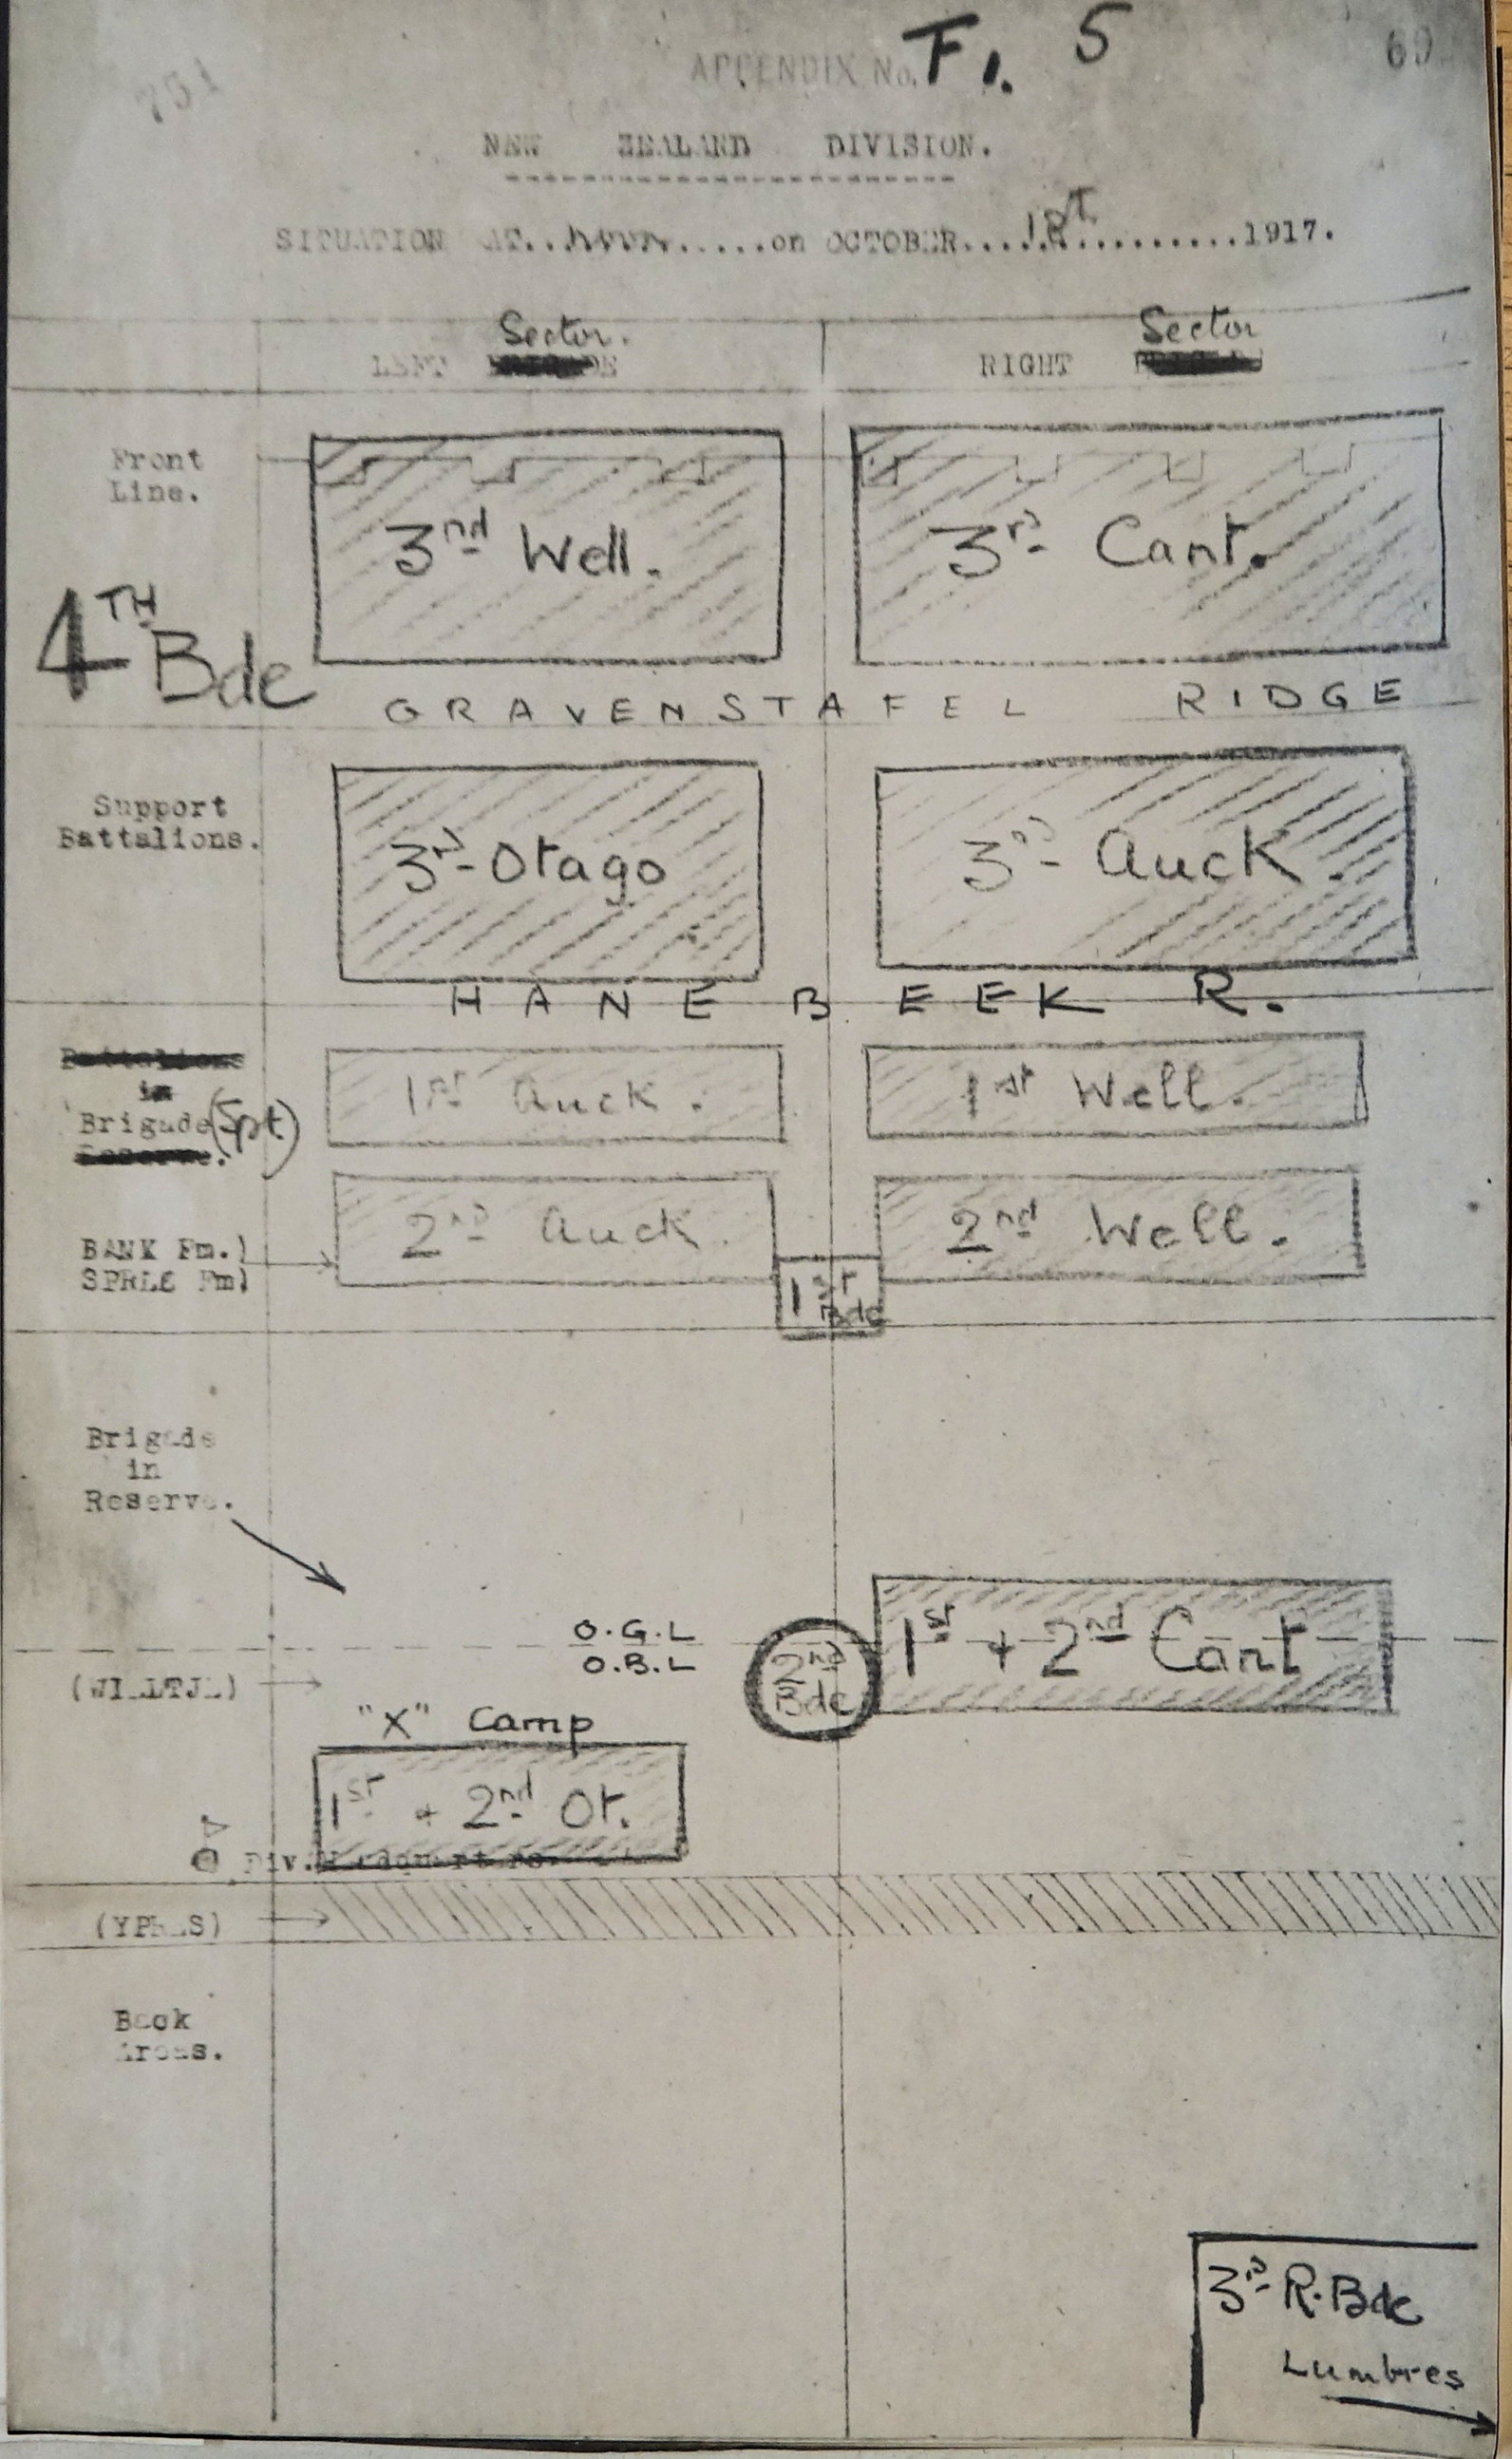 751
APPENDIX No. F1. 5
NEW ZEALAND DIVISION.
SITUATION AT..noon.....on OCTOBER.............1917.
Sector.
LEFT
Sector
RIGHT
Front
Line.
3nd Well.
3rd Cant.
4TH
Bde
GRAVENSTAFEL RIDGE
Support
Battalions.
3rd Otago
3rd Auck.
HANEBEEK R.
Battalions
in
Brigade (Spt.)
Reserve.
1st Auck.
1st Well.
2nd Auck.
2nd Well.
BANK Fm.)
Fm)
1st
Bde
Brigade
in
Reserve.
O.G.L
O.B.L
2nd
Bde
1st + 2nd Cant
"X" Camp
1st + 2nd Ot.
Div.
(YPRES)
Back
Areas.
3rd R.Bde
Lumbres